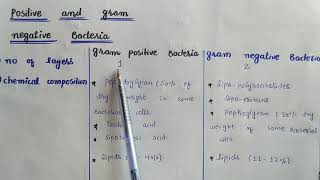 Positive and gram
negative Bacteria
gram positive Bacteria
gram negative Bacteria
no of layers
1
2
chemical composition
* Peptidoglycan (50% of
dry weight in some
Bacterial cells
* Teichoic acid
* Lipoteichoic acid
* Lipids
* Lipo-polysaccharides
* Lipo-proteins
* Peptidoglycan (10% dry
weight of some Bacterial
cells
* Lipids (11-12%)